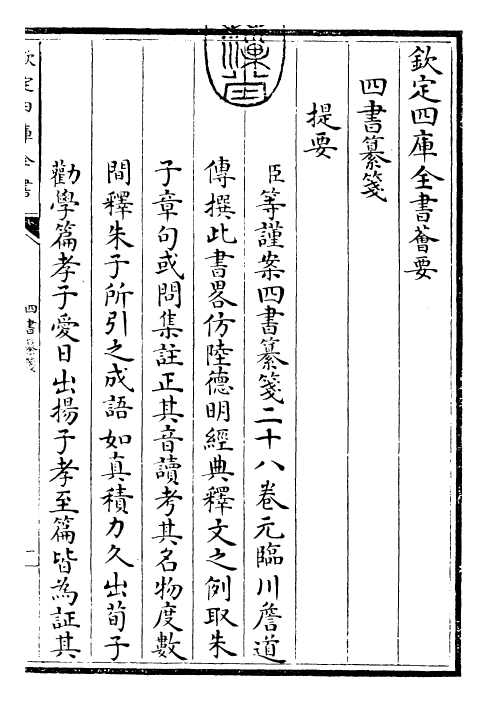 欽定四庫全書薈要
四書纂箋
提要
臣等謹案四書纂箋二十八卷元臨川詹道
傳撰此書畧仿陸德明經典釋文之例取朱
子章句或問集註正其音讀考其名物度數
間釋朱子所引之成語如真積力久出荀子
勸學篇孝子愛日出揚子孝至篇皆為証其
欽定四庫全書
四書纂箋